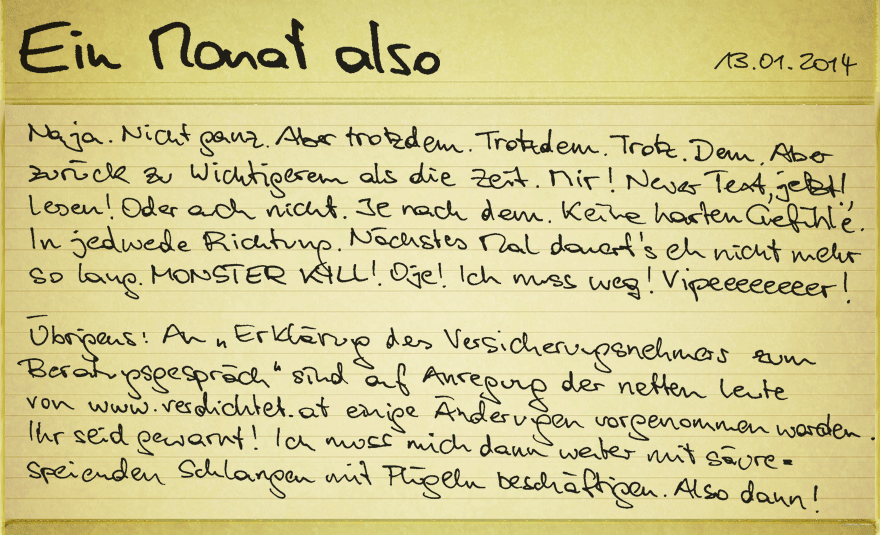 Ein Monat also
13.01.2014
Naja. Nicht ganz. Aber trotzdem. Trotzdem. Trotz. Dem. Aber
zurück zu Wichtigerem als die Zeit. Mir! Neuer Text, jetzt!
Lesen! Oder auch nicht. Je nach dem. Keine harten Gefühle.
In jedwede Richtung. Nächstes Mal dauert's eh nicht mehr
so lang. MONSTER KILL! Oje! Ich muss weg! Vipeeeeeeeer!
Übrigens: An „Erklärung des Versicherungsnehmers zum
Beratungsgespräch“ sind auf Anregung der netten Leute
von www.verdichtet.at einige Änderungen vorgenommen worden.
Ihr seid gewarnt! Ich muss mich dann weiter mit säure-
speienden Schlangen mit Flügeln beschäftigen. Also dann!